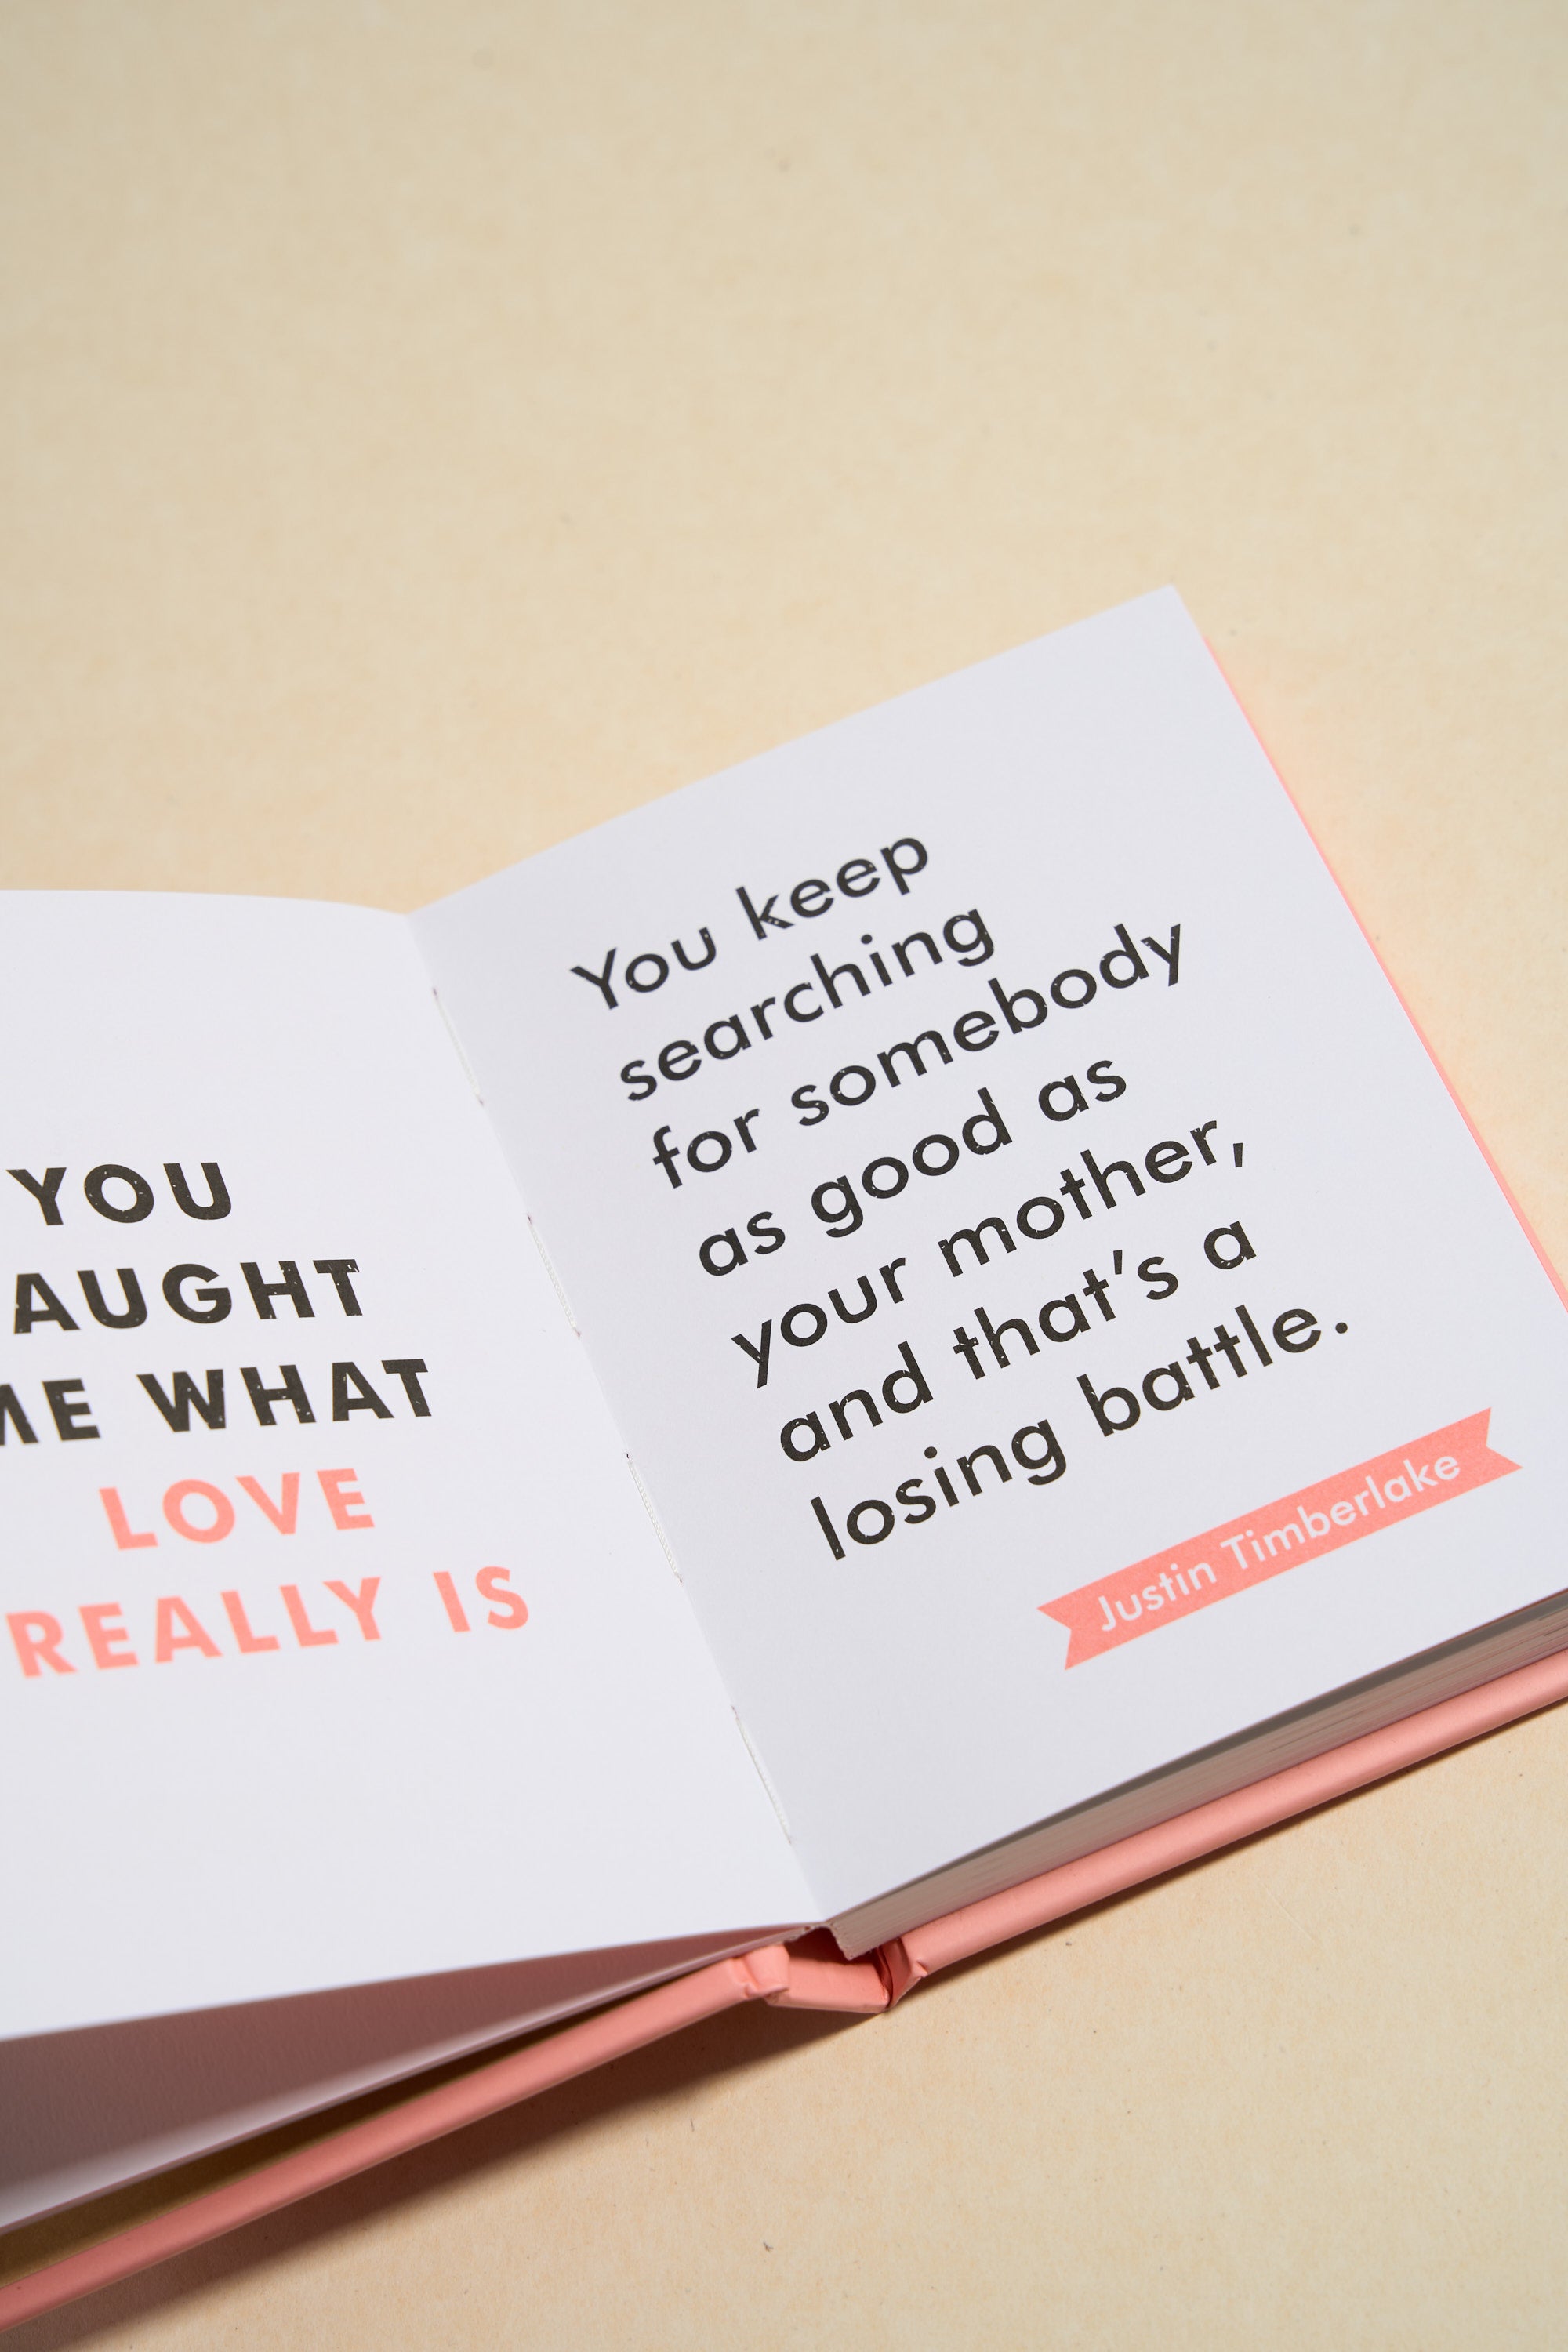 YOU
AUGHT
ME WHAT
LOVE
REALLY IS
You keep
searching
for somebody
as good as
your mother,
and that's a
losing battle.
Justin Timberlake